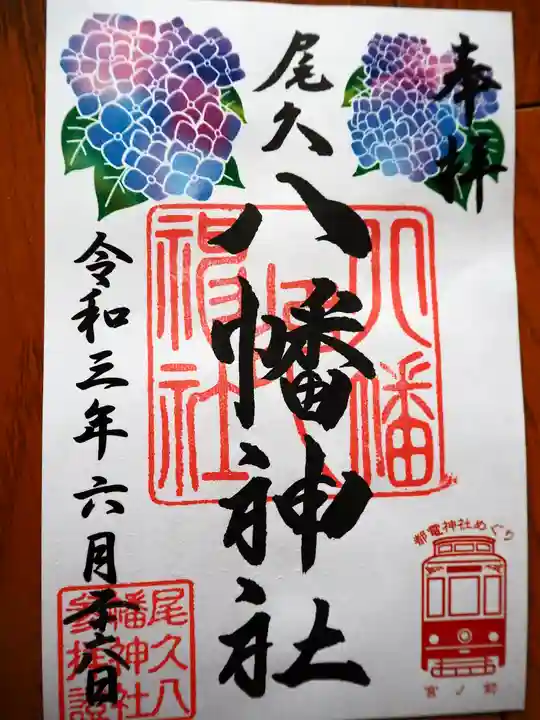 奉拝
尾久
八幡神社
令和三年六月六日
都電神社めぐり
宮ノ前
尾久八
幡神社
参拝證